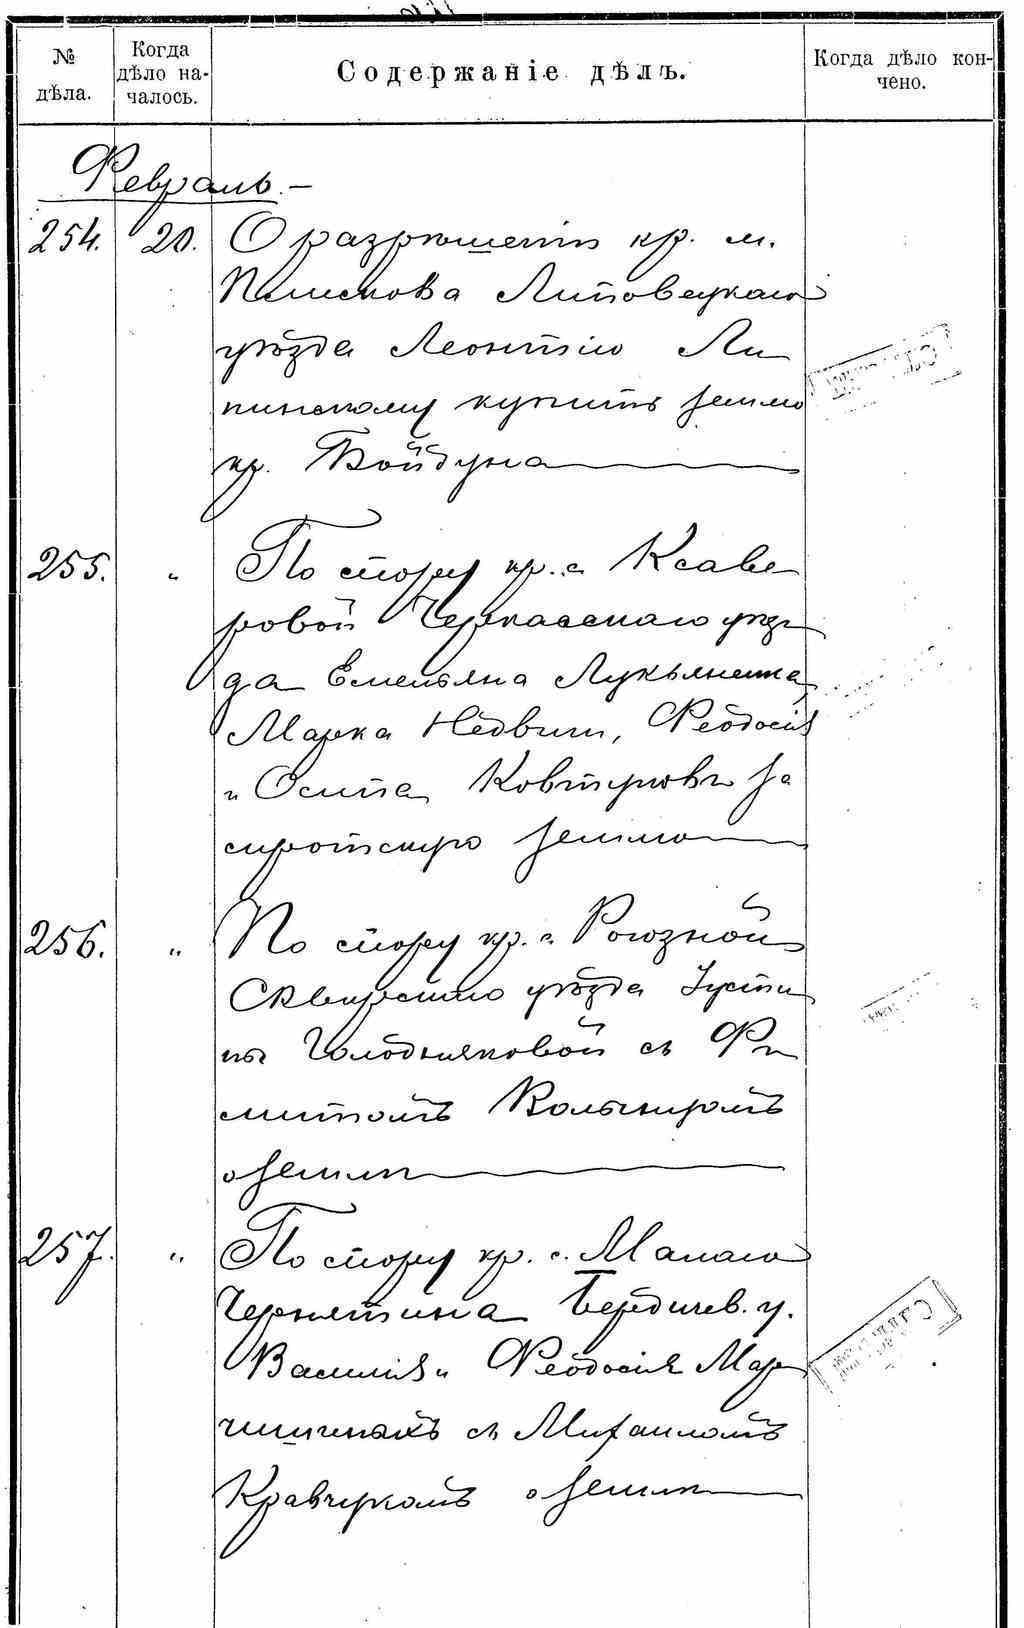 № дѣла.
Когда дѣло на-чалось.
Содержаніе дѣлъ.
Когда дѣло кон-чено.
Февраль.—
254. 20. О разрѣшеніи кр. м.
Плискова Липовецкаго
уѣзда Леонтію Ли
пинскому купить землю
кр. Бойдуна
255. " По спору кр. с. Ксаве
ровой Черкасскаго уѣз
да Емельяна Лукьяненка,
Марка Недбиги, Феодосія
и Осипа Ковтуновъ за
сиротскую землю
256. " По спору кр. с. Рогозной
Сквирскаго уѣзда Іусти
ны Голодняковой съ Фи
липомъ
о землѣ
257. " По спору кр. с. Малаго
Чернятина Бердичев. у.
Василія и Феодосія Мар
съ Михаиломъ
Кравчукомъ о землѣ